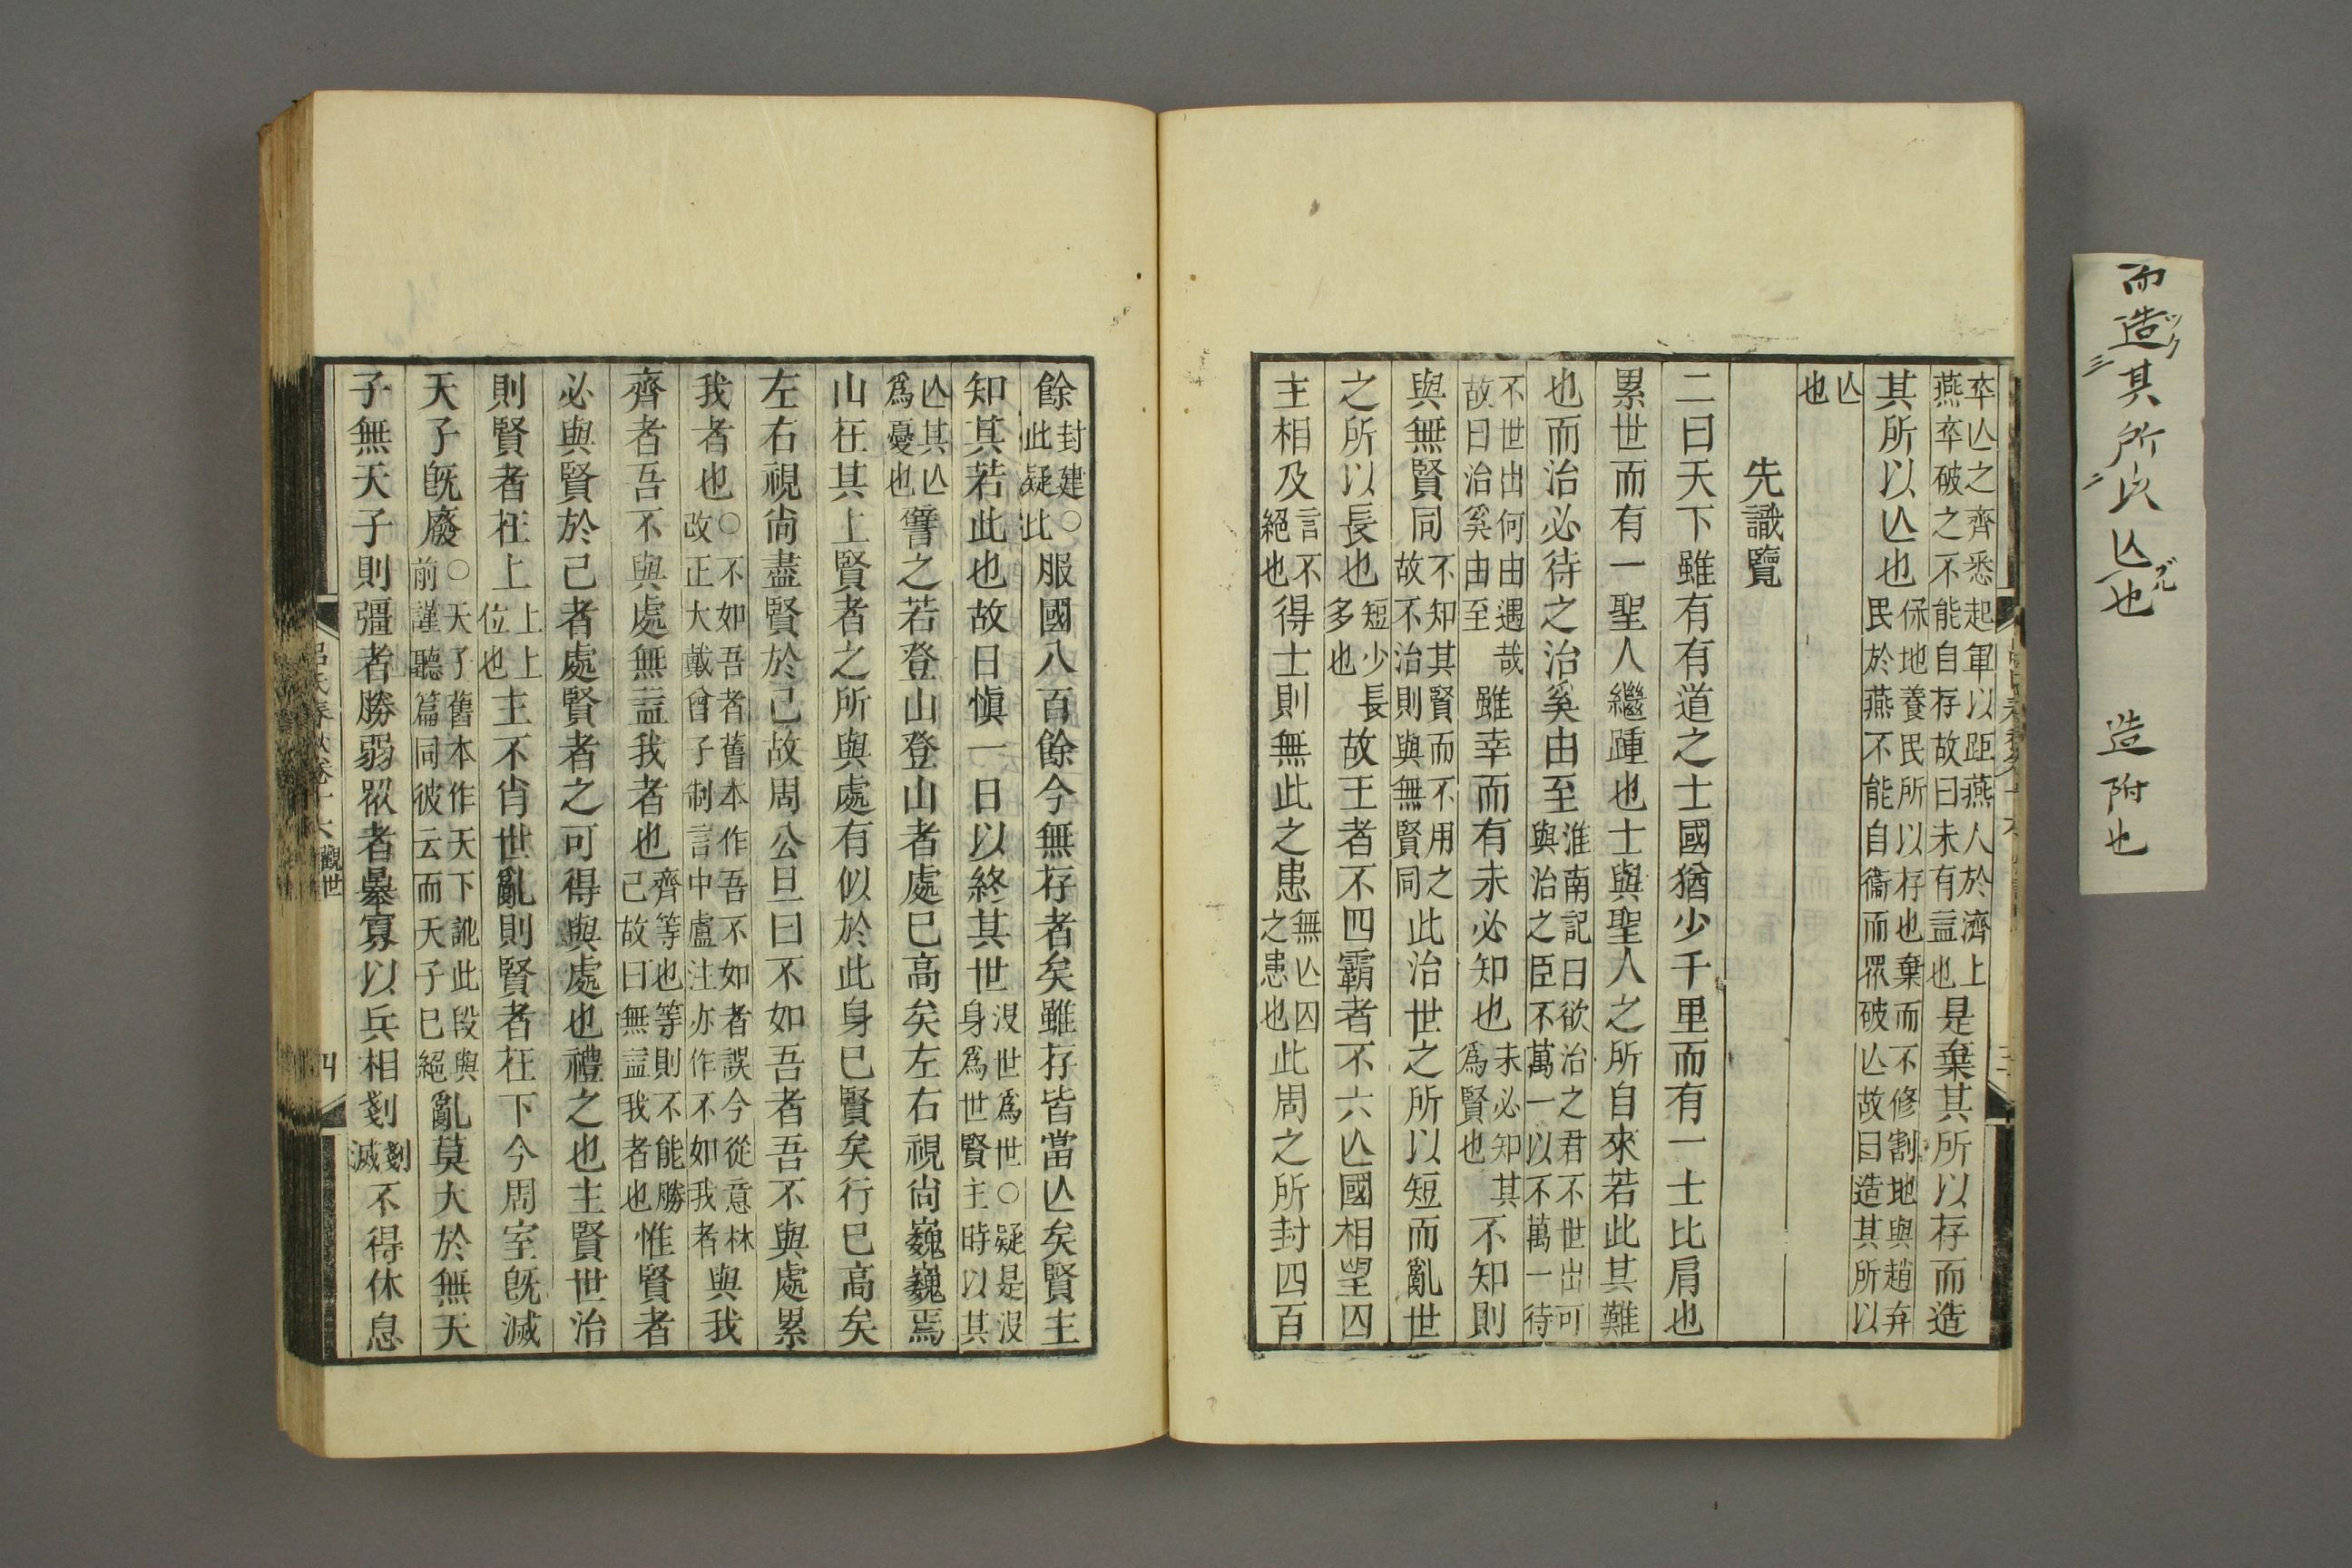 而造其所以亾也　造附也
ツク
ミ
ニ
ブル
卒亾之齊悉起軍以距燕人於濟上燕卒破之不能自存故曰未有益也是棄其所以存而造
其所以亾也保地養民所以存也棄而不修割地與趙弃民於燕不能自衞而眾破亾故曰造其所以
亾也
先識覽
二曰天下雖有有道之士國猶少千里而有一士比肩也
累世而有一聖人繼踵也士與聖人之所自來若此其難
也而治必待之治奚由至淮南記曰欲治之君不世出可與治之臣不萬一以不萬一待
不世出何由遇哉故曰治奚由至雖幸而有未必知也未必知其爲賢也不知則
與無賢同不知其賢而不用之故不治則與無賢同此治世之所以短而亂世
之所以長也短少長多也故王者不四霸者不六亾國相望囚
主相及言不絕也得士則無此之患無亾囚之患也此周之所封四百
餘封建○此疑比服國八百餘今無存者矣雖存皆當亾矣賢主
知其若此也故日愼一日以終其世沒世爲世○疑是沒身爲世賢主時以其
亾其亾爲憂也譬之若登山登山者處已高矣左右視尙巍巍焉
山在其上賢者之所與處有似於此身已賢矣行已高矣
左右視尙盡賢於己故周公旦曰不如吾者吾不與處累
我者也○不如吾者舊本作吾不如者誤今從意林改正大戴曾子制言中盧注亦作不如我者與我
齊者吾不與處無益我者也齊等也等則不能勝己故曰無益我者也惟賢者
必與賢於己者處賢者之可得與處也禮之也主賢世治
則賢者在上上上位也主不肖世亂則賢者在下今周室旣滅
天子旣廢○天子舊本作天下訛此段與前謹聽篇同彼云而天子已絕亂莫大於無天
子無天子則彊者勝弱眾者暴寡以兵相剗剗滅不得休息
呂氏春秋卷十六觀世
四